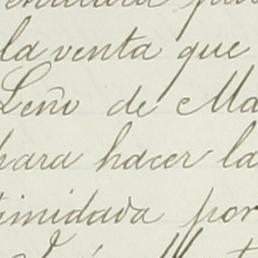 la venta que
Leño de Ma
para hacer la
timidada por